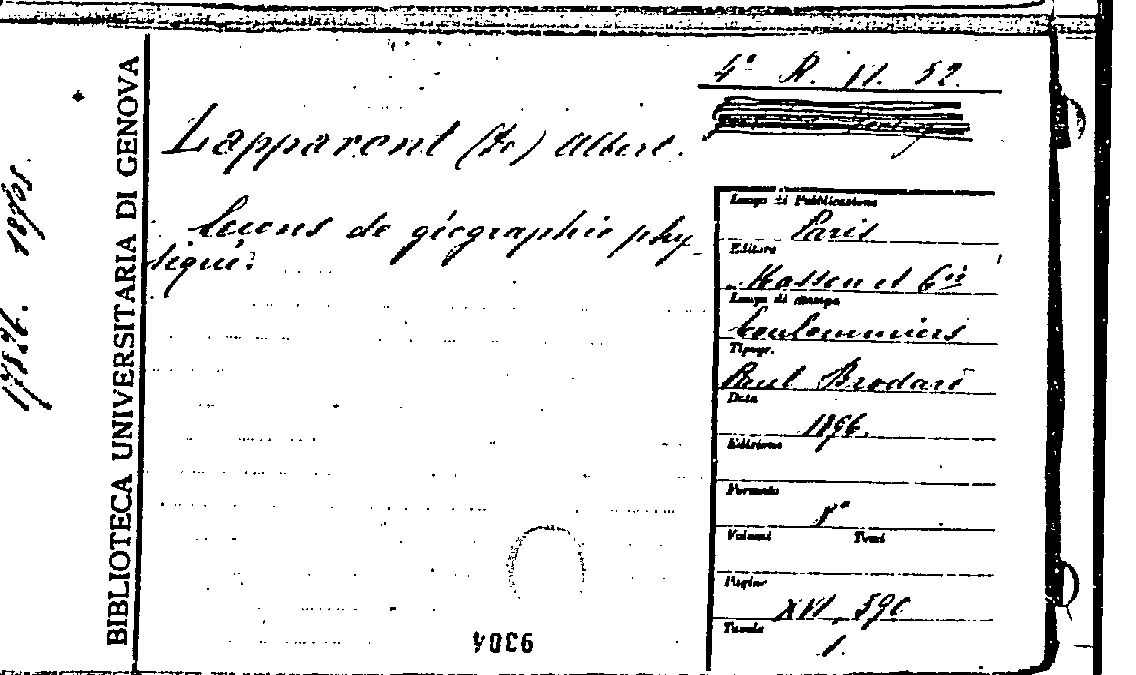 4° R. VI. 52.
Lapparent (de) Albert.
Leçons de géographie phy-
sique.
BIBLIOTECA UNIVERSITARIA DI GENOVA
Luogo di Pubblicazione
Paris
Editore
Masson et Cie
Luogo di stampa
Coulommiers
Tipogr.
Paul Brodard
Data
1896.
Edizione
Formato
8°
Volumi Tomi
Pagine
XVI, 590
Tavole
1.
9304